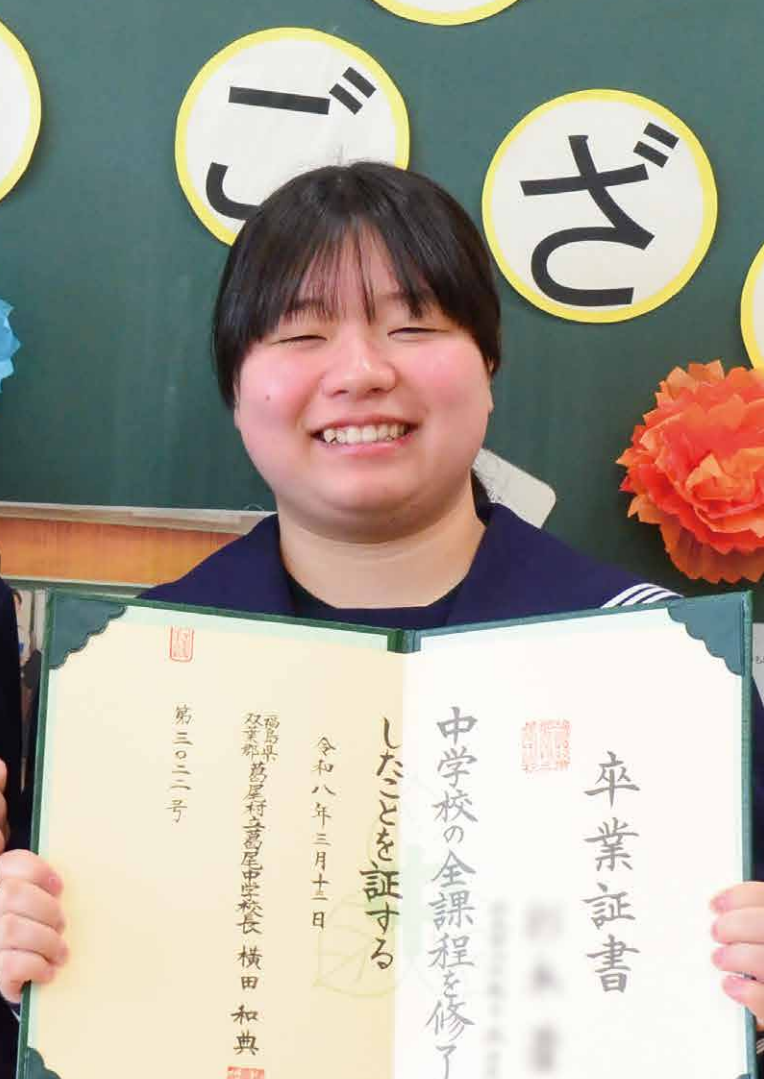 ござ
卒業証書
中学校の全課程を修了
したことを証する
令和八年三月十三日
福島県
双葉郡
葛尾村立葛尾中学校長 横田和典
第三〇二二号